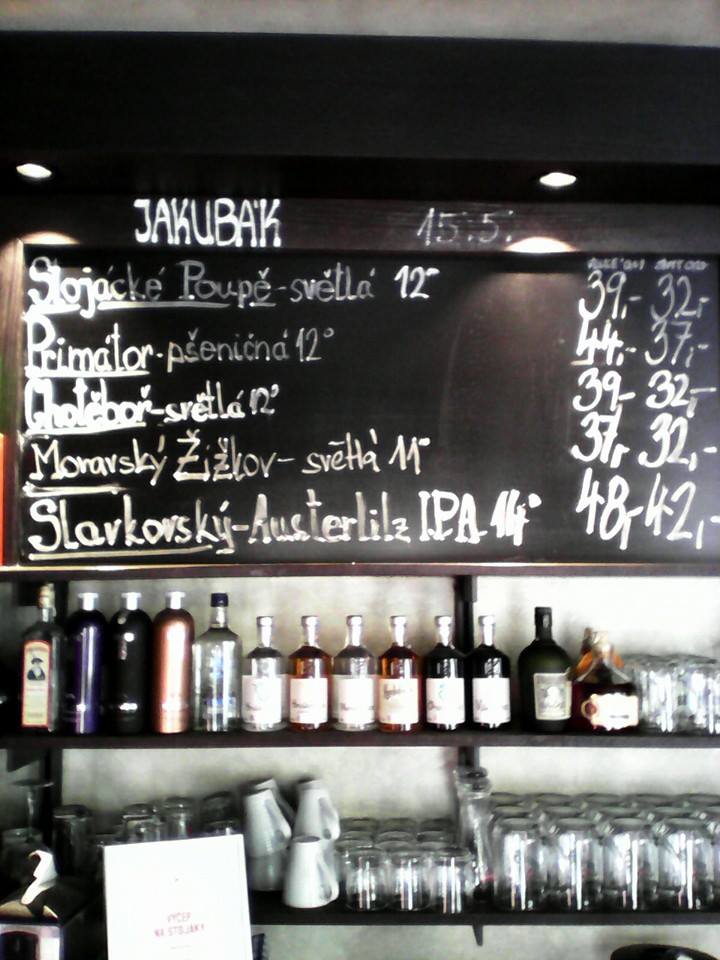 JAKUBÁK 15.5.
Stojácké Poupě-světlá 12° 39,- 32,-
Primátor-pšeničná 12° 44,- 37,-
Chotěboř-světlá 12° 39,- 32,-
Moravský Žižkov-světlá 11° 37,- 32,-
Slavkovský-Austerlitz I.P.A. 14° 48,- 42,-
VÝČEP
NA STOJÁKA